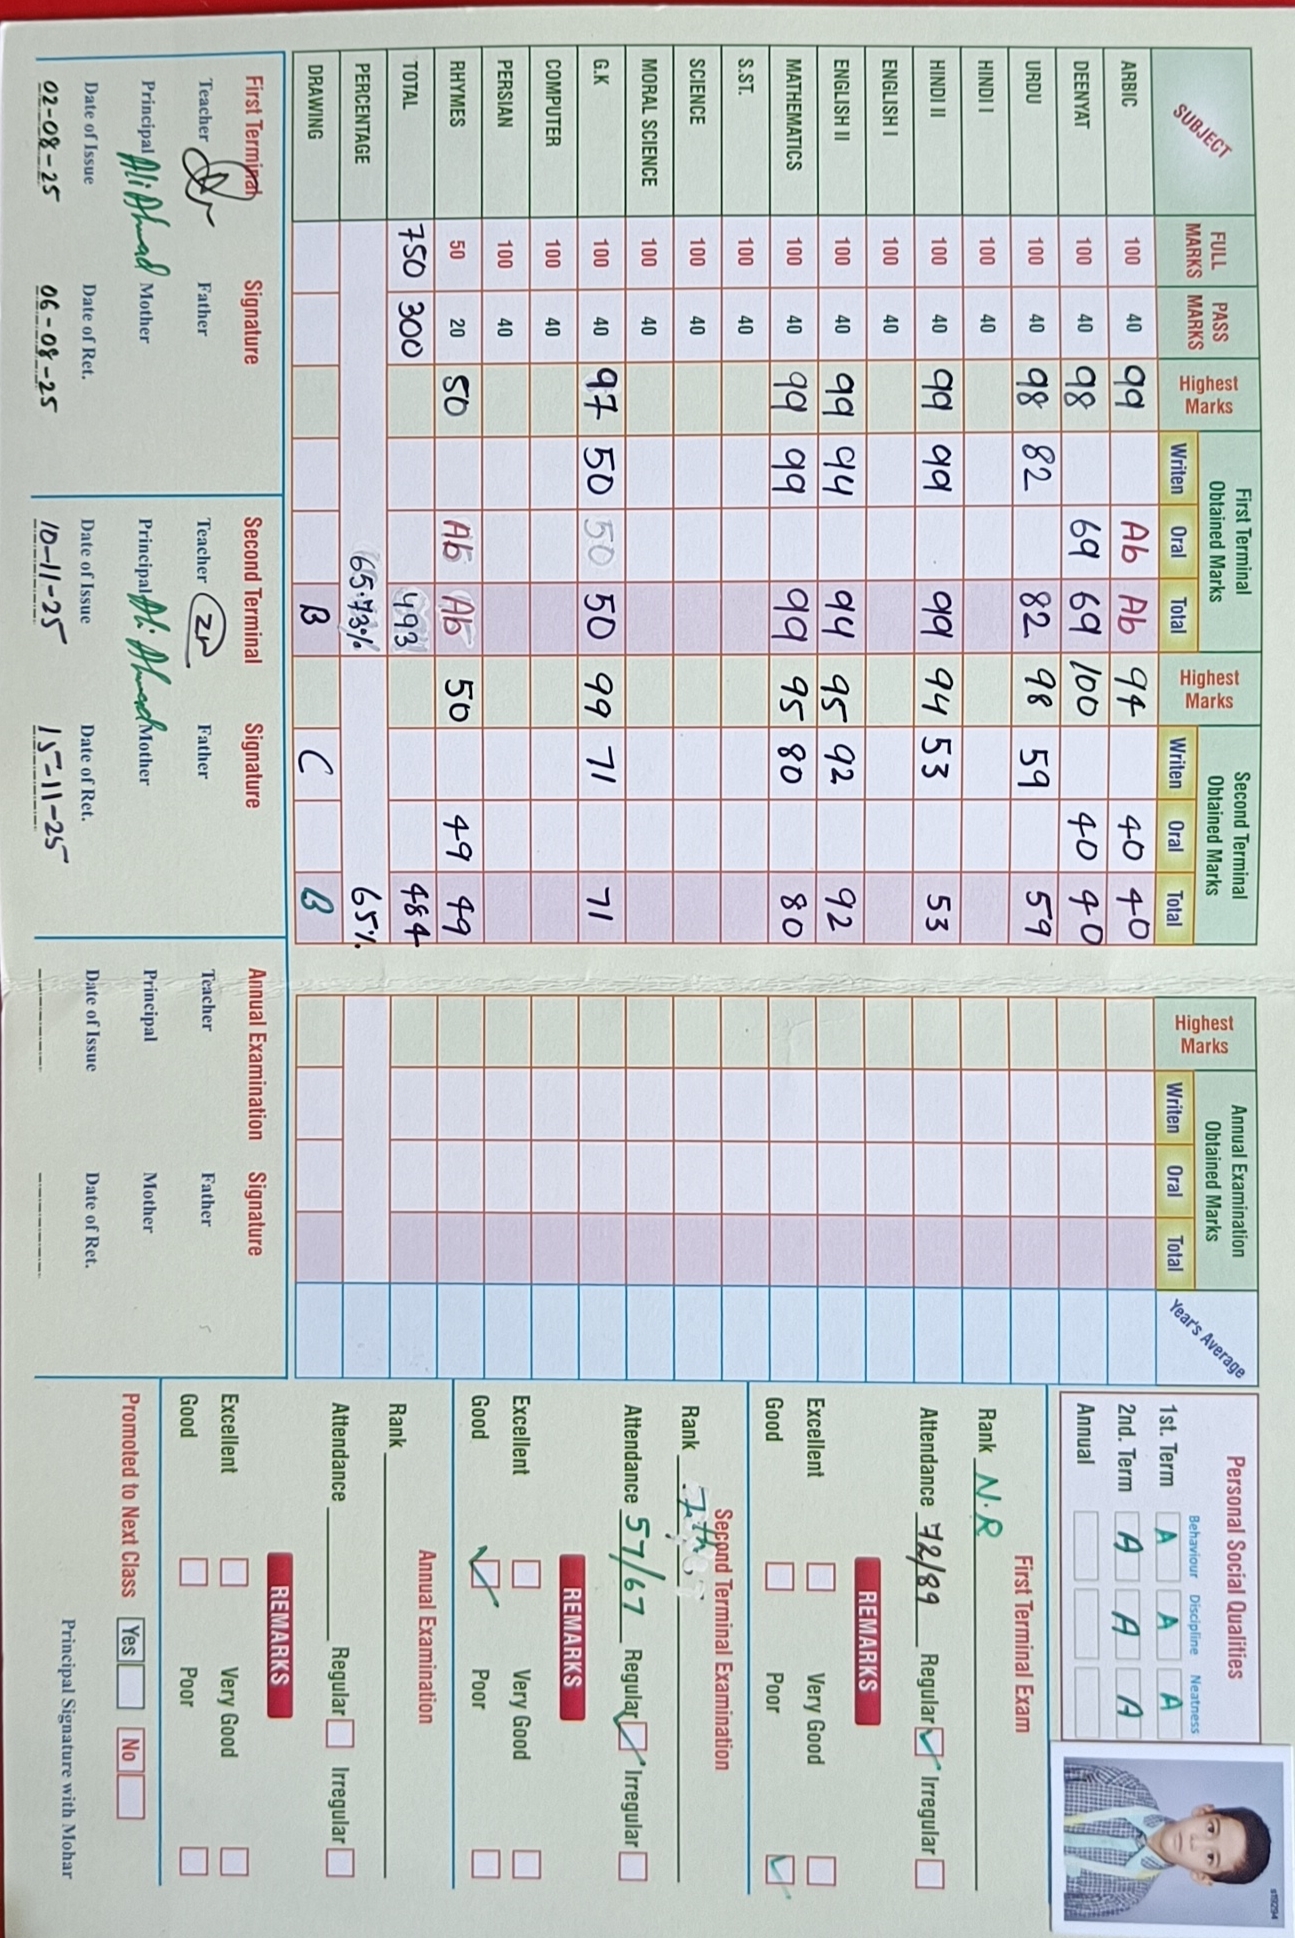 SUBJECT FULL MARKS PASS MARKS Highest Marks First Terminal Obtained Marks Highest Marks Second Terminal Obtained Marks Highest Marks Annual Examination Obtained Marks Year's Average
Writen Oral Total Writen Oral Total Writen Oral Total
ARBIC 100 40 99 Ab Ab 94 40 40
DEENYAT 100 40 98 69 69 100 40 40
URDU 100 40 98 82 82 98 59 59
HINDI I 100 40
HINDI II 100 40 99 99 99 94 53 53
ENGLISH I 100 40
ENGLISH II 100 40 99 94 94 95 92 92
MATHEMATICS 100 40 99 99 99 95 80 80
S.ST. 100 40
SCIENCE 100 40
MORAL SCIENCE 100 40
G.K 100 40 97 50 50 50 99 71 71
COMPUTER 100 40
PERSIAN 100 40
RHYMES 50 20 50 Ab Ab 50 49 49
TOTAL 750 300 493 484
PERCENTAGE 65.73% 65%
DRAWING B C B
First Terminal Signature
Teacher Father
Principal Ali Ahmad Mother
Date of Issue Date of Ret.
02-08-25 06-08-25
Second Terminal Signature
Teacher Father
Principal Ali Ahmad Mother
Date of Issue Date of Ret.
10-11-25 15-11-25
Annual Examination Signature
Teacher Father
Principal Mother
Date of Issue Date of Ret.
Personal Social Qualities
Behaviour Discipline Neatness
1st. Term A A A
2nd. Term A A A
Annual
s19294
First Terminal Exam
Rank N.R
Attendance 72/89 Regular Irregular
REMARKS
Excellent Very Good
Good Poor
Second Terminal Examination
Rank 7th
Attendance 57/67 Regular Irregular
REMARKS
Excellent Very Good
Good Poor
Annual Examination
Rank
Attendance Regular Irregular
REMARKS
Excellent Very Good
Good Poor
Promoted to Next Class Yes No
Principal Signature with Mohar